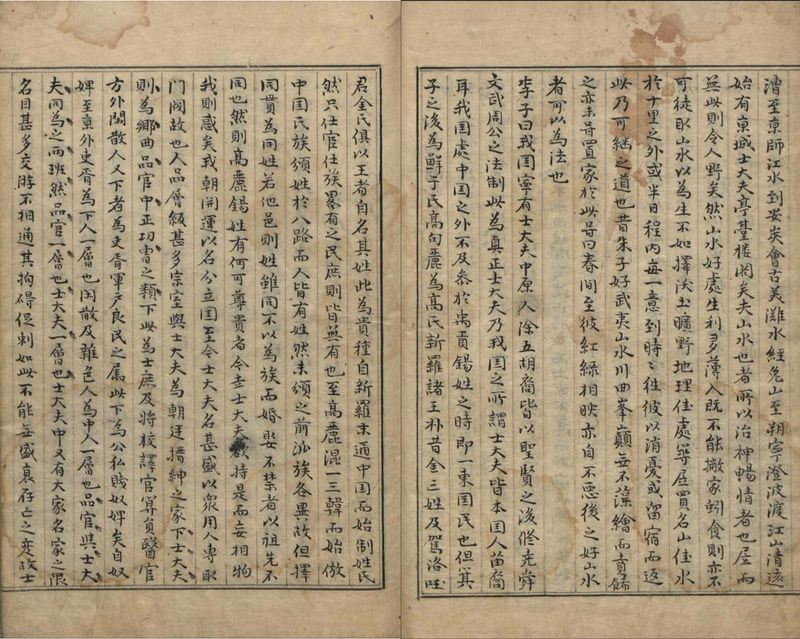 漕至京師江水到安炭會古美灘水經兔山至朔寧澄波渡江山清遠
始有京城士大夫亭臺楼閣矣夫山水也者所以治神暢情者也居而
無此則令人野矣然山水好處生利多薄人既不能撇家蚓食則亦不
可徒取山水以為生不如擇沃土曠野地理佳處築居買名山佳水
於十里之外或半日程内每一意到時〻徃彼以消憂或留宿而返
此乃可継之道也昔朱子好武夷山水川曲峯巔無不藻繪而賁餙
之亦未嘗置家於此嘗曰春间至彼紅綠相映亦自不悪後之好山水
者可以為法也
李子曰我国寧有士大夫中原人除五胡裔皆以聖賢之後修尭舜
文武周公之法制此為真正士大夫乃我国之所謂士大夫皆本国人苗裔
耳我国處中国之外不及忝於禹貢錫姓之時即一東国民也但箕
子之後為鮮于氏高句麗為髙氏新羅諸王朴昔金三姓及駕洛国
君金氏俱以王者自名其姓此為貴種自新羅末通中国而始制姓氏
然只仕宦仕族畧有之民庶則皆無有也至高麗混一三韓而始倣
中国氏族頒姓於八路而人皆有姓然未頒之前氏族各異故但擇
同貫為同姓若他邑則姓雖同不以為族而婚娶不禁者以祖先不
同也然則高麗錫姓有何可尊貴者今士大夫載持是而妄相物
我則惑矣我朝開運以名分立国至今士大夫名甚盛以衆用人専取
門閥故也人品層級甚多宗室與士大夫為朝廷搢紳之家下士大夫
則為郷曲品官中正功曺之類下此為士庶及將校譯官筭員醫官
方外閑散人又下者為吏胥軍戶良民之属此下為公私賎奴婢矣自奴
婢至京外吏胥為下人一層也閑散及雜色人為中人一層也品官與士大
夫同為之両班然品官一層也士大夫一層也士大夫中又有大家名家之限
名目甚多交游不相通其拘碍促刺如此不能無盛衰存亡之変故士